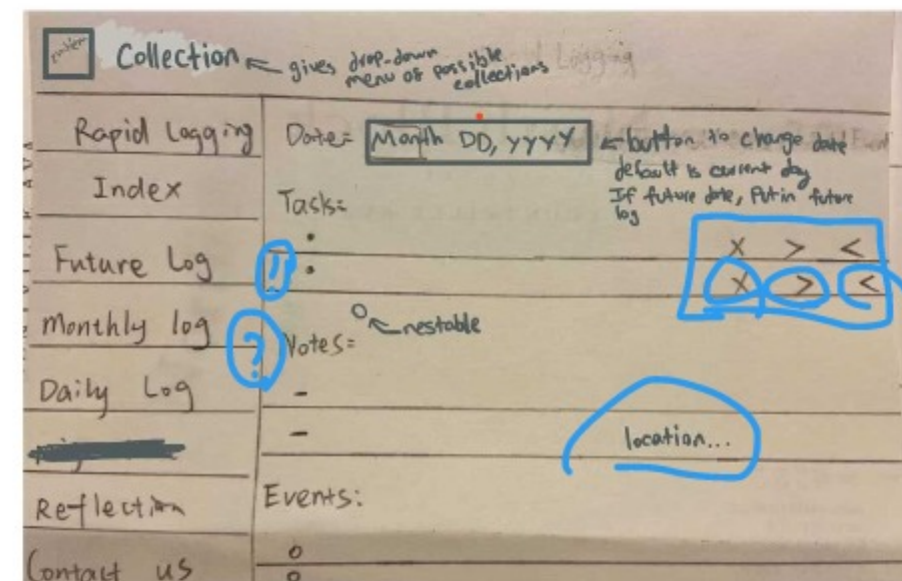 Collection
gives drop-down
menu of possible
collections
Logging
Rapid Logging
Index
Future Log
Monthly log
Daily Log
Reflection
Contact us
Date: Month DD, YYYY
button to change date
default is current day
If future date, Put in future
log
Tasks:
•
X > <
!! •
X > <
nestable
? Notes:
-
-
location...
Events:
o
o